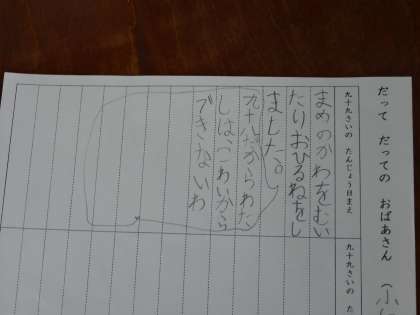 だって だっての おばあさん （
九十九さいの たんじょう日まえ
まめのかわをむい
たりおひるねをし
ました。
九十八だからわた
しは、こわいから
できないわ
九十九さいの た